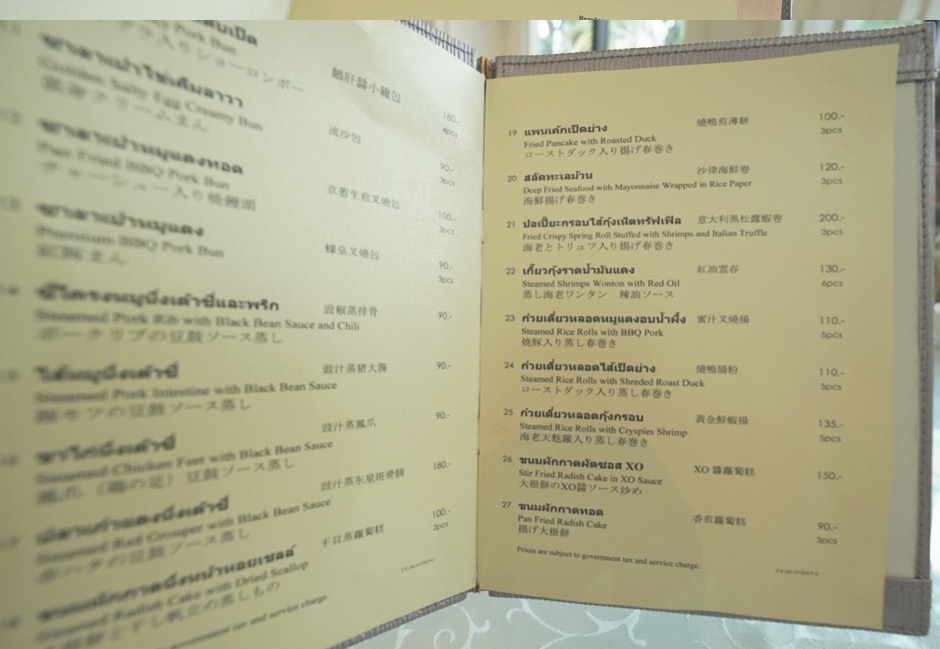 鵝肝醬小籠包
180.-
4pcs
Golden Salty Egg Creamy Bun
流沙包
90.-
3pcs
Pan Fried BBQ Pork Bun
京葱生煎叉燒包
100.-
3pcs
ซาลาเปาหมูแดง
Premium BBQ Pork Bun
蠔皇叉燒包
90.-
3pcs
ซี่โครงหมูนึ่งเต้าซี่และพริก
豉椒蒸排骨
90.-
Steamed Pork Rib with Black Bean Sauce and Chili
ポークリブの豆鼓ソース蒸し
ไส้หมูนึ่งเต้าซี่
豉汁蒸猪大腸
90.-
Steamed Pork Intestine with Black Bean Sauce
豚モツの豆鼓ソース蒸し
ขาไก่นึ่งเต้าซี่
豉汁蒸鳳爪
90.-
Steamed Chicken Feet with Black Bean Sauce
鳳爪 (鶏の足) 豆鼓ソース蒸し
豉汁蒸东星斑骨腩
180.-
Steamed Red Grouper with Black Bean Sauce
ขนมผักกาดนึ่งหน้าหอยเชลล์
干貝蒸蘿蔔糕
100.-
2pcs
Steamed Radish Cake with Dried Scallop
government tax and service charge.
19 แพนเค้กเป็ดย่าง 燒鴨煎薄餅 100.-
Fried Pancake with Roasted Duck 3pcs
ローストダック入り揚げ春巻き
20 สลัดทะเลม้วน 沙律海鮮卷 120.-
Deep Fried Seafood with Mayonnaise Wrapped in Rice Paper 3pcs
海鮮揚げ春巻き
21 ปอเปี๊ยะกรอบไส้กุ้งเห็ดทรัฟเฟิล 意大利黑松露蝦卷 200.-
Fried Crispy Spring Roll Stuffed with Shrimps and Italian Truffle 3pcs
海老とトリュフ入り揚げ春巻き
22 เกี๊ยวกุ้งราดน้ำมันแดง 紅油雲吞 130.-
Steamed Shrimps Wonton with Red Oil 6pcs
蒸し海老ワンタン 辣油ソース
23 ก๋วยเตี๋ยวหลอดหมูแดงอบน้ำผึ้ง 蜜汁叉燒腸 110.-
Steamed Rice Rolls with BBQ Pork 5pcs
焼豚入り蒸し春巻き
24 ก๋วยเตี๋ยวหลอดไส้เป็ดย่าง 燒鴨腸粉 110.-
Steamed Rice Rolls with Shreded Roast Duck 5pcs
ローストダック入り蒸し春巻き
25 ก๋วยเตี๋ยวหลอดกุ้งกรอบ 黃金鮮蝦腸 135.-
Steamed Rice Rolls with Cryspies Shrimp 5pcs
海老天麩羅入り蒸し春巻き
26 ขนมผักกาดผัดซอส XO XO 醬蘿蔔糕 150.-
Stir Fried Radish Cake in XO Sauce
大根餅のXO醤ソース炒め
27 ขนมผักกาดทอด 香煎蘿蔔糕 90.-
Pan Fried Radish Cake 3pcs
揚げ大根餅
Prices are subject to government tax and service charge.